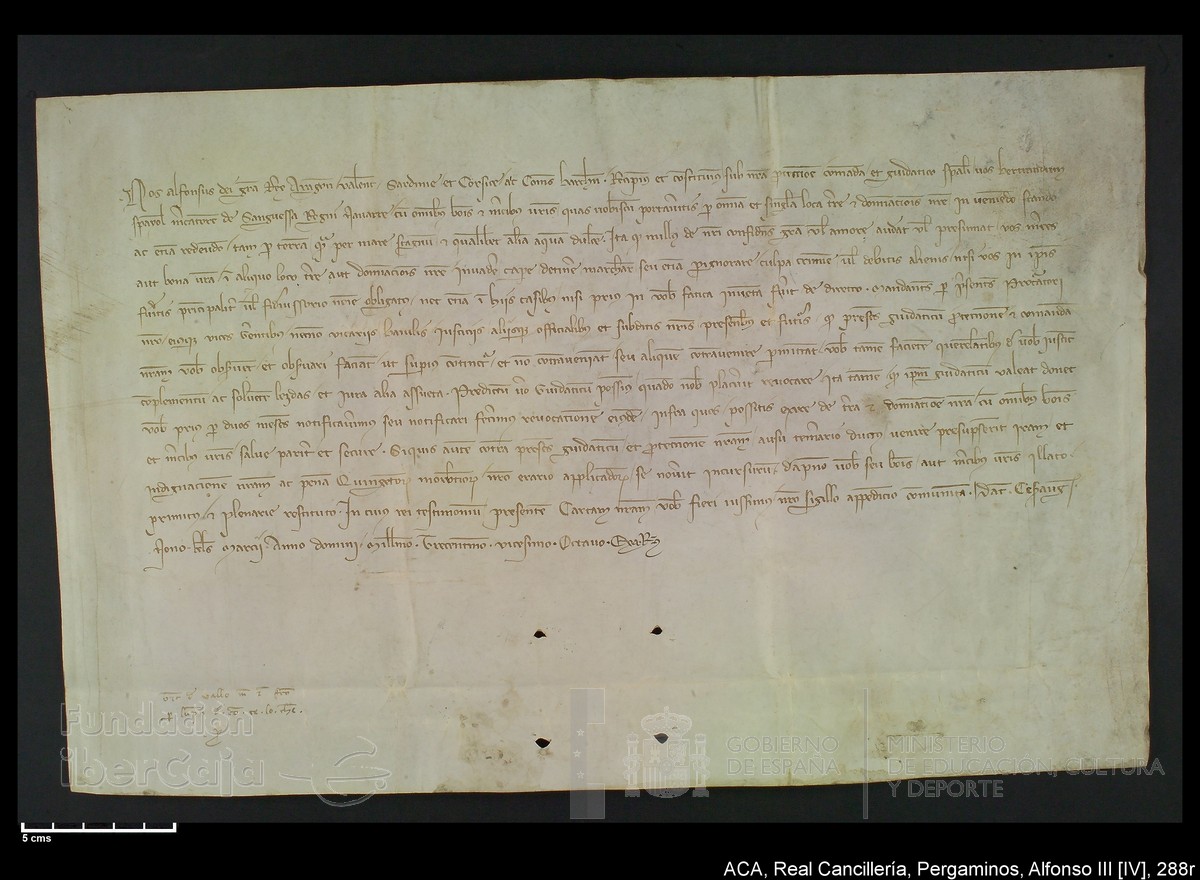 Nos alfonsus dei gra Rex Aragon. valent. Sardinie et Corsice ac Comes barchn. Recipimus et costituimus sub nra proteccioe comada et guidatico spali vos bertrandum
spanol mcatorem de Sanguessa Regni Navarre cu omibus bois et mcibus vris quas vobiscu portaveritis p omia et singla loca tre et domiacios nre in veniedo stando
ac etia redeundo tam p terra qm per mare stagnu et qualibet alia aqua dulce. Ita qd nullus de nri confidens gra vl amore audeat vl presumat vos mces
aut bona vra i aliquo loco tre aut domiacios nre invade cape detine marchare seu etia pignorare culpa crimine vl debitis alienis nisi vos in ipis
fueritis principalit vl fideiussorio noie obligati. nec etia i hijs casibus nisi prius in vob fatica inveta fuit de directo. Mandantes p psentes Procuratori
nro eiusque vices gerentibus necno vicarijs baiulis iusticijs alijsque officialibus et subditis nris presentibus et futuris qd presens guidaticu proteccione et comanda
nram vob observet et observari faciat ut superius continet et no contraveniat seu aliquem contravenire pmittat. vob tame faciete querelatibus de vob iusticie
complementu ac solvere lezdas et iura alia assueta. Predictum vo Guidaticu possim quado nob placuit revocare. Ita tamen qd ipm guidaticu valeat donec
vob prius p duos meses notificaverimus seu notificari fecerimus revocacione eiusde. infra quos possitis exire de tra et domiacioe nra cu omibus bois
et mcibus vris salve parit et secure. Siquis aute contra presens guidaticu et proteccione nram ausu temerario ductus venire presupserit iram et
indignacione nram ac pena Quingetor morbotior nro erario applicador se noverit incursuru. dapno vob seu bois aut mcibus vris illato
primitus et plenarie restituto. In cuius rei testimonium presente Cartam nram vob fieri iussimus nro Sigillo appedicio comunita. Dat. Cesarauguste
Nono kls Marcij. Anno domini. Millimo. Trecentimo. vicesimo. Octavo. Exa. Rs
Fundación
iberCaja
GOBIERNO
DE ESPAÑA
MINISTERIO
DE EDUCACIÓN, CULTURA
Y DEPORTE
5 cms
ACA, Real Cancillería, Pergaminos, Alfonso III [IV], 288r